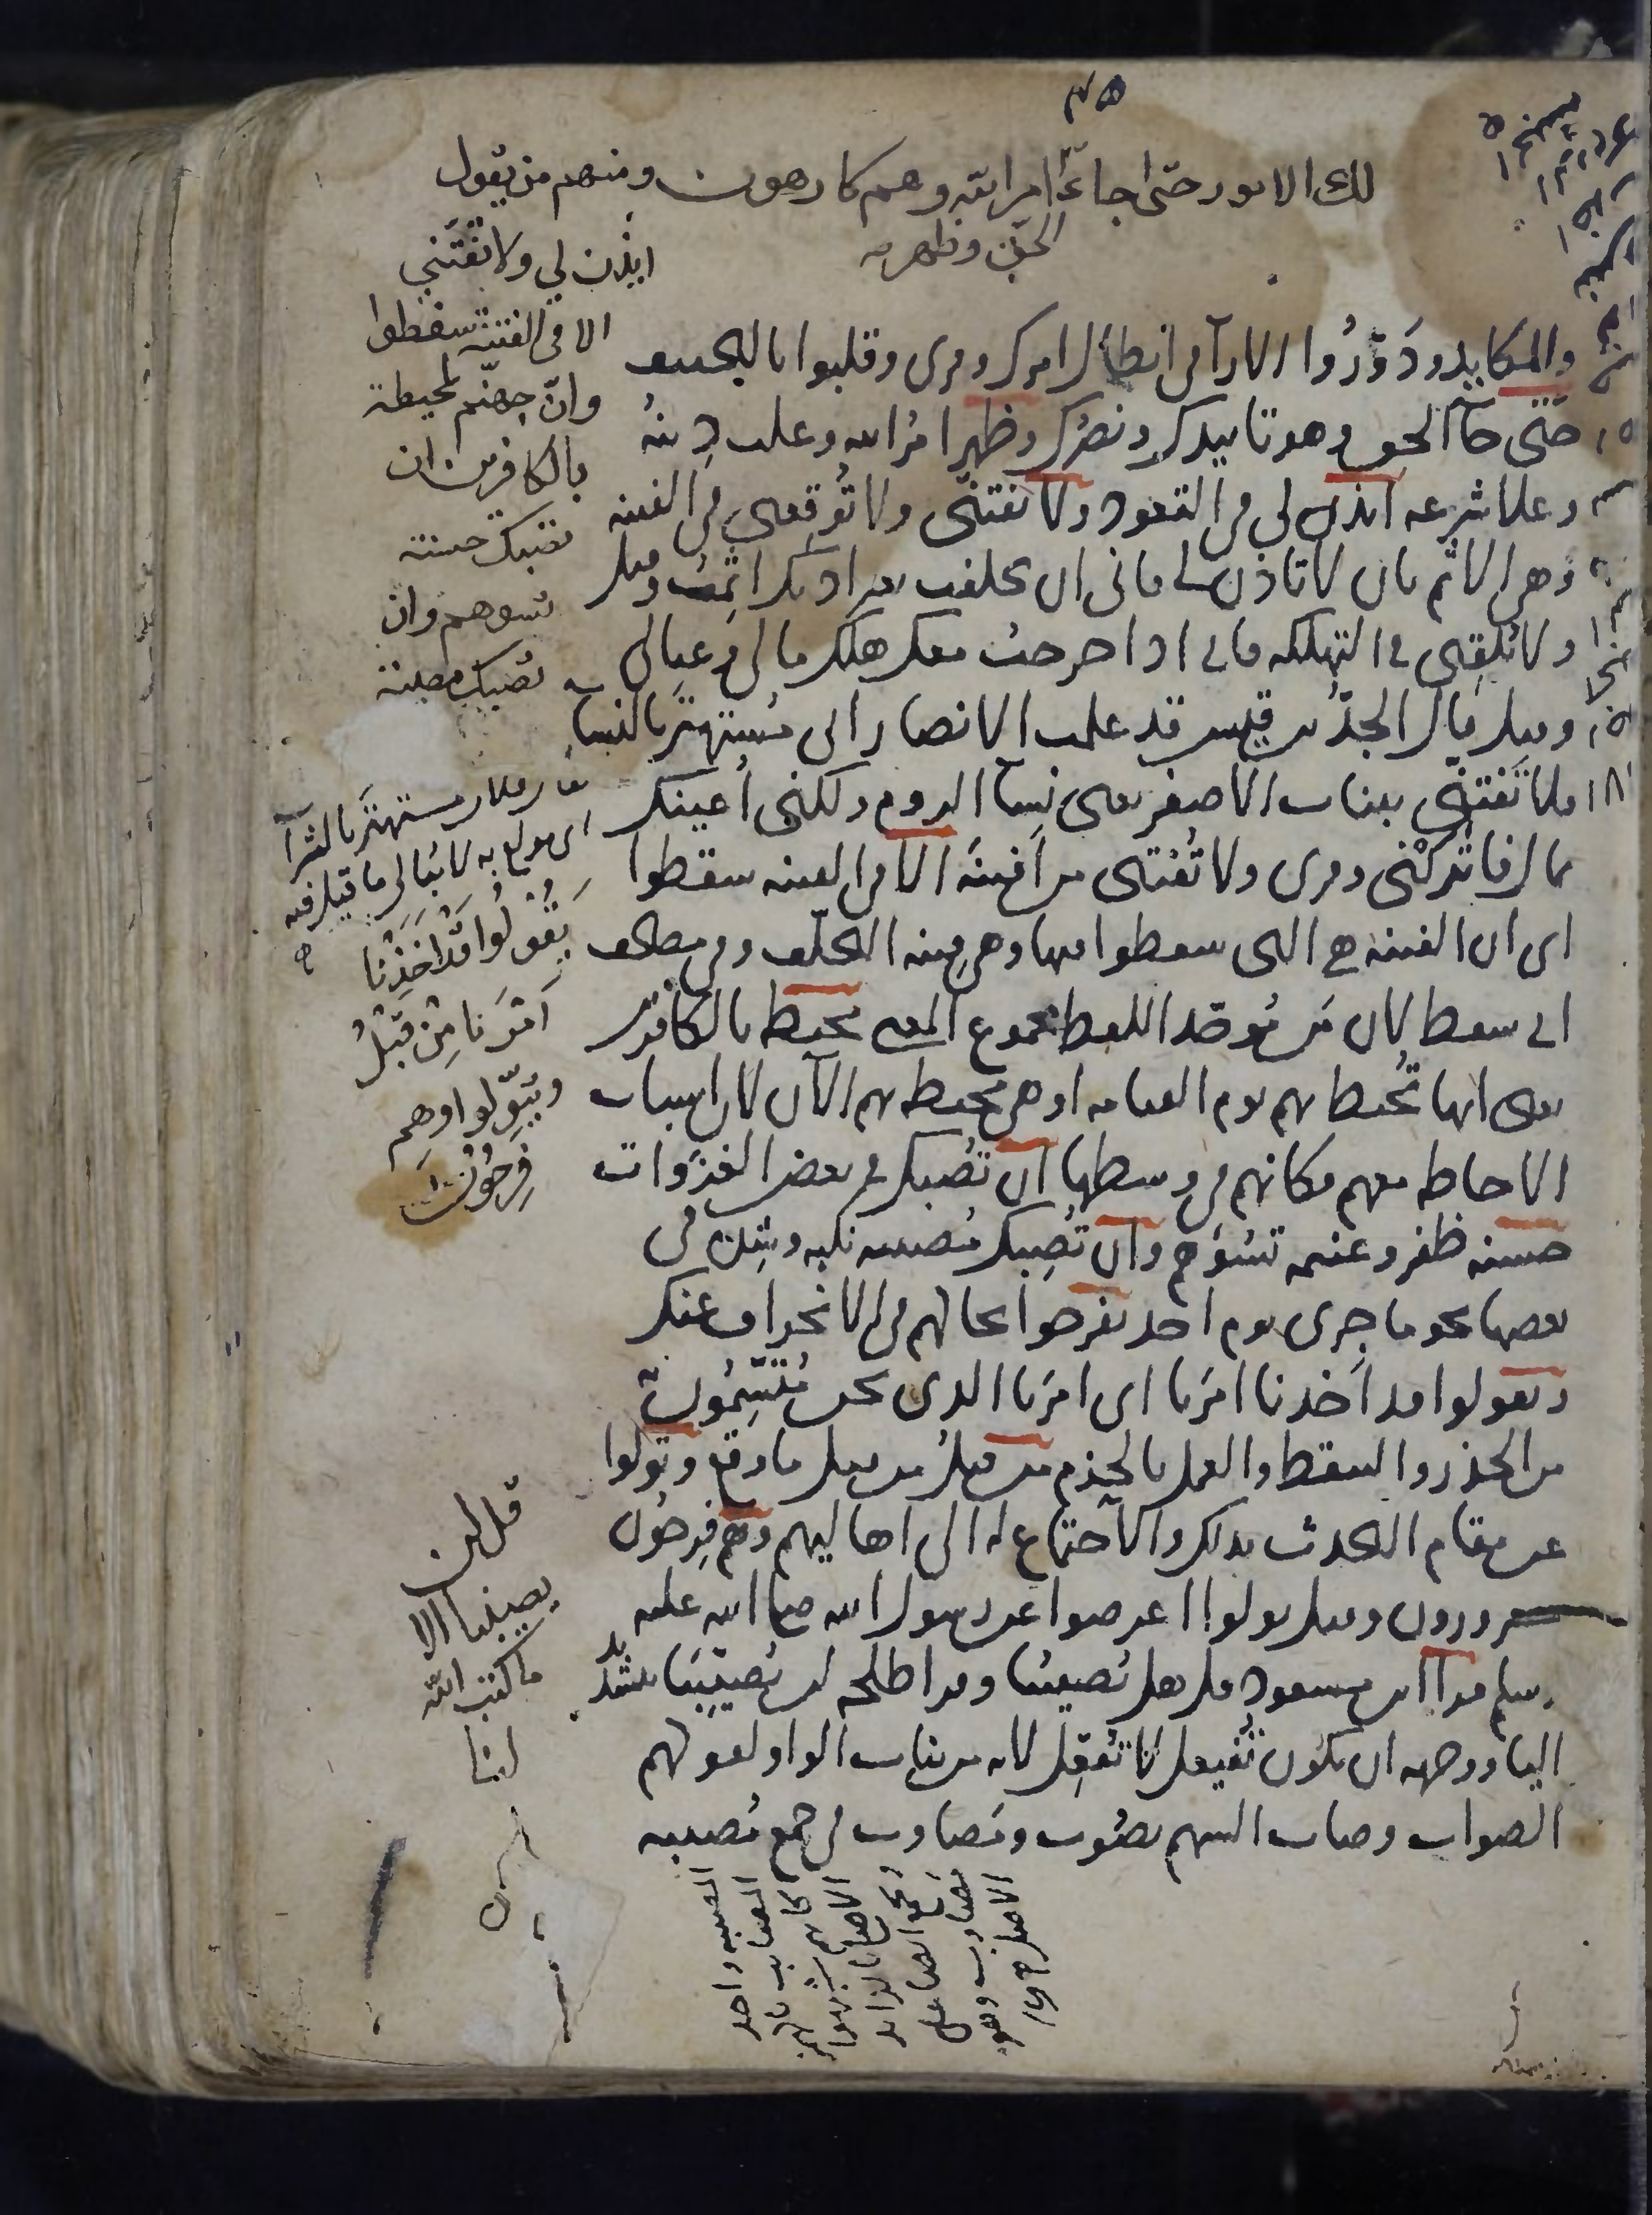 لك الامور حتى اجاء امر الله وهم كارهون ومنهم من يقول
الحق وظهر
ايذن لي ولا تفتني
الا في الفتنة سقطوا
وانّ جهنّم لمحيطة
بالكافرين ان
تصبك حسنة
تسوهم وان
تصبك مصيبة
والمكايد ودَوّرُوا الارآ في ابطال امرك وقرى وقلبوا بالتخفيف
حَتّى جآ الحق وهو تاييدك ونصرك وظهر امرُ الله وغلب دِينهُ
وعلا شرعه ائذن لي في القعود ولا تفتنّي ولا تُوقعني في الفتنه
وهي الاثم بان لا تاذن لي فاني ان تخلفت بغير اذنك اثمت وقيل
ولا تُلقِنى في التهلكه فاني اذا خرجت معك هلك مالي وعيالي
وقيل قال الجدّ بن قيس قد علمت الانصار انى مُستهتَر بالنسآ
فلا تَفتنّي ببنات الاصفر يعني نِسآ الروم ولكني أعينك
بمال فاتركْني وقرى ولا تُفتنى من افتنهُ الا في الفتنه سقطوا
اى ان الفتنه هي التي سقطوا فيها وهي فتنه التخلّف وفي مصحف
ابي سقط لان مَن مُوحّد اللفظ مجموع المعنى لمحيطه بالكافرين
يعنى انها تُحيط بهم يوم القيامه او هي محيطه بهم الآن لان اسباب
الاحاطه معهم فكانهم في وسطها ان تُصبك في بعض الغزوات
حسنه ظفر وغنيمه تسُؤهم وان تُصِبك مُصيبه نكبه وشده في
بعضها نحو ما جرى يوم احد يفرحوا بحالهم في الانحراف عنك
ويقولوا قد اَخذنا امرَنا اى امرَنا الذى نحن مُتّسِمُون به
من الحذر والتيقظ والعمل بالحزم من قبلُ من قبل ما وقع وتولّوا
عن مقام التحدث بذلك والاجتماع له الى اهاليهم وهم فرِحُون
مسرورون وقيل تولوا اعرضوا عن رسول الله صلى الله عليه
وسلم قرا ابن مسعود قل هل يُصيبُنا وقرا طلحه لن يُصيّبَنا بتشديد
اليا ووجهه ان يكون يُفيعل لا يُفعّل لانه من بنات الواو لقولهم
الصواب وصاب السهم يصُوب ومَصاوب في جمع مُصيبه
يقال فلان مستهتَر بالشراب
اى مولع به لا يُبالى ما قيل فيه
يَقُولُوا قَدْ اَخَذْنَا
اَمْرَنا مِنْ قَبْلُ
ويَتَوَلّوا وهم
فَرِحُونَ
قل لن
يصيبنا الا
ما كتب الله
لنا
المصيبه واحده
المصايب
كانهم شبهوا
الاصلي بالزائد
ويجمع ايضا على
مصاوب وهو
الاصل صحاح